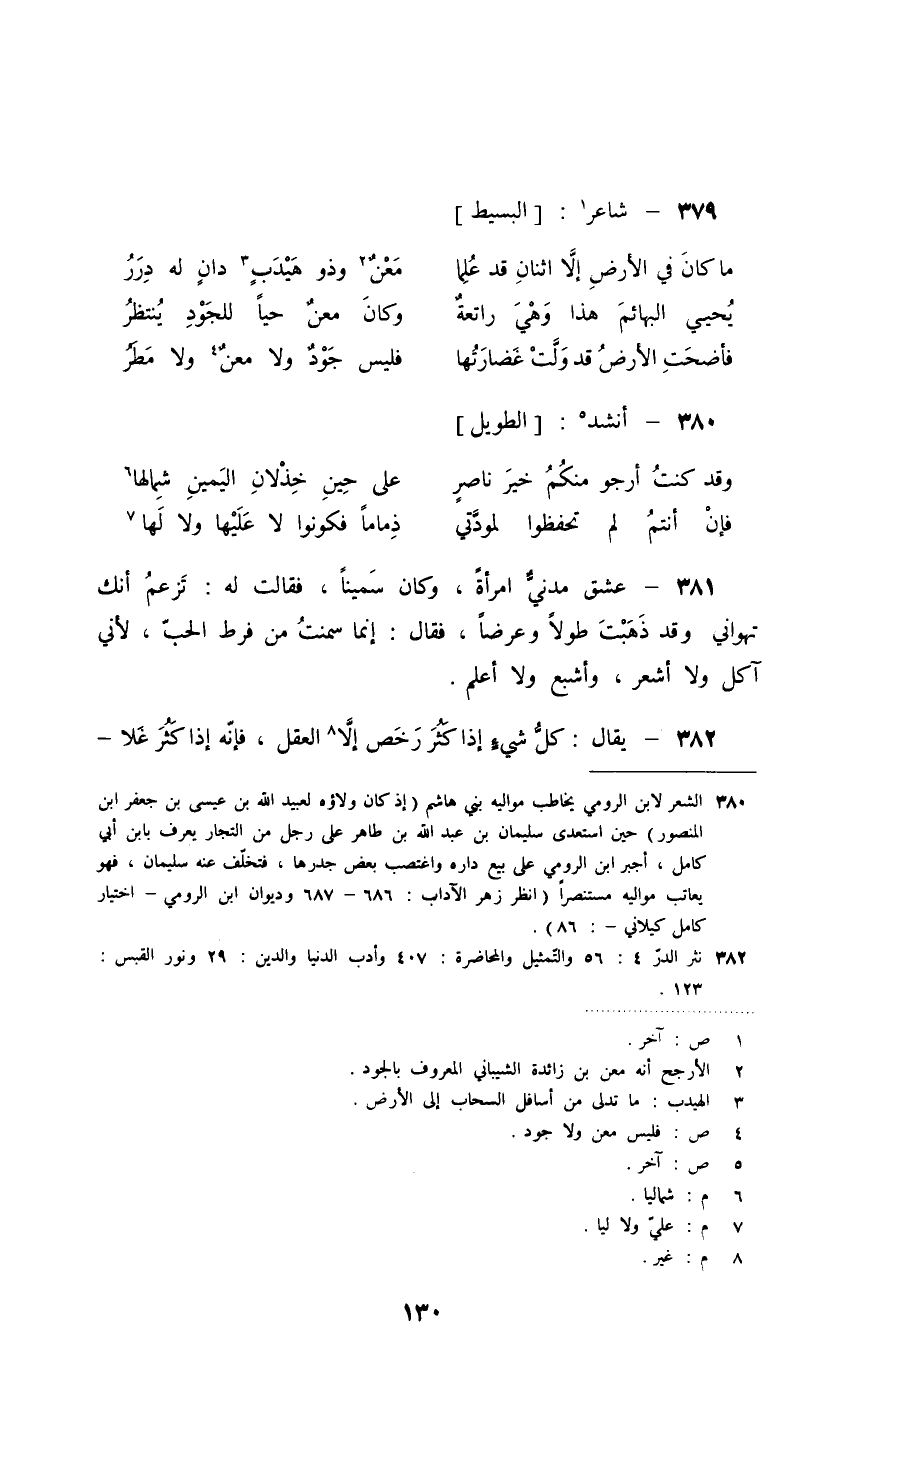 ٣٧٩ – شاعر١ : [ البسيط ]
ما كانَ في الأرضِ إلَّا اثنانِ قد عُلِما مَعْنٌ٢ وذو هَيْدَبٍ٣ دانٍ له دِرَرُ
يُحيـي البهائمَ هذا وَهْيَ راتعةٌ وكانَ معنٌ حياً للجَوْدِ يُنتظرُ
فأضحَتِ الأرضُ قد وَلَّتْ غَضارَتُها فليس جَوْدٌ ولا معنٌ٤ ولا مَطَرُ
٣٨٠ – أنشد٥ : [ الطويل ]
وقد كنتُ أرجو منكُمُ خيرَ ناصرٍ على حِينِ خِذْلانِ اليَمينِ شِمالها٦
فإنْ أنتمُ لم تحفظوا لمودَّتي ذِماماً فكونوا لا عَلَيْها ولا لَها٧
٣٨١ – عشق مدنيٌّ امرأةً ، وكان سَميناً ، فقالت له : تَزعمُ أنك
تهواني وقد ذَهَبْتَ طولاً وعرضاً ، فقال : إنما سمنتُ من فرط الحبّ ، لأني
آكل ولا أشعر ، وأشبع ولا أعلم .
٣٨٢ – يقال : كلُّ شيءٍ إذا كَثُرَ رَخَص إلَّا٨ العقل ، فإنّه إذا كَثُرَ غَلا –
٣٨٠ الشعر لابن الرومي يخاطب مواليه بني هاشم ( إذ كان ولاؤه لعبيد الله بن عيسى بن جعفر ابن
المنصور ) حين استعدى سليمان بن عبد الله بن طاهر على رجل من التجار يعرف بابن أبي
كامل ، أجبر ابن الرومي على بيع داره واغتصب بعض جدرها ، فتخلّف عنه سليمان ، فهو
يعاتب مواليه مستنصراً ( انظر زهر الآداب : ٦٨٦ – ٦٨٧ وديوان ابن الرومي – اختيار
كامل كيلاني – : ٨٦ ) .
٣٨٢ نثر الدرّ ٤ : ٥٦ والتمثيل والمحاضرة : ٤٠٧ وأدب الدنيا والدين : ٢٩ ونور القبس :
١٢٣ .
١ ص : آخر .
٢ الأرجح أنه معن بن زائدة الشيباني المعروف بالجود .
٣ الهيدب : ما تدلى من أسافل السحاب إلى الأرض .
٤ ص : فليس معن ولا جود .
٥ ص : آخر .
٦ م : شماليا .
٧ م : عليّ ولا ليا .
٨ م : غير .
١٣٠